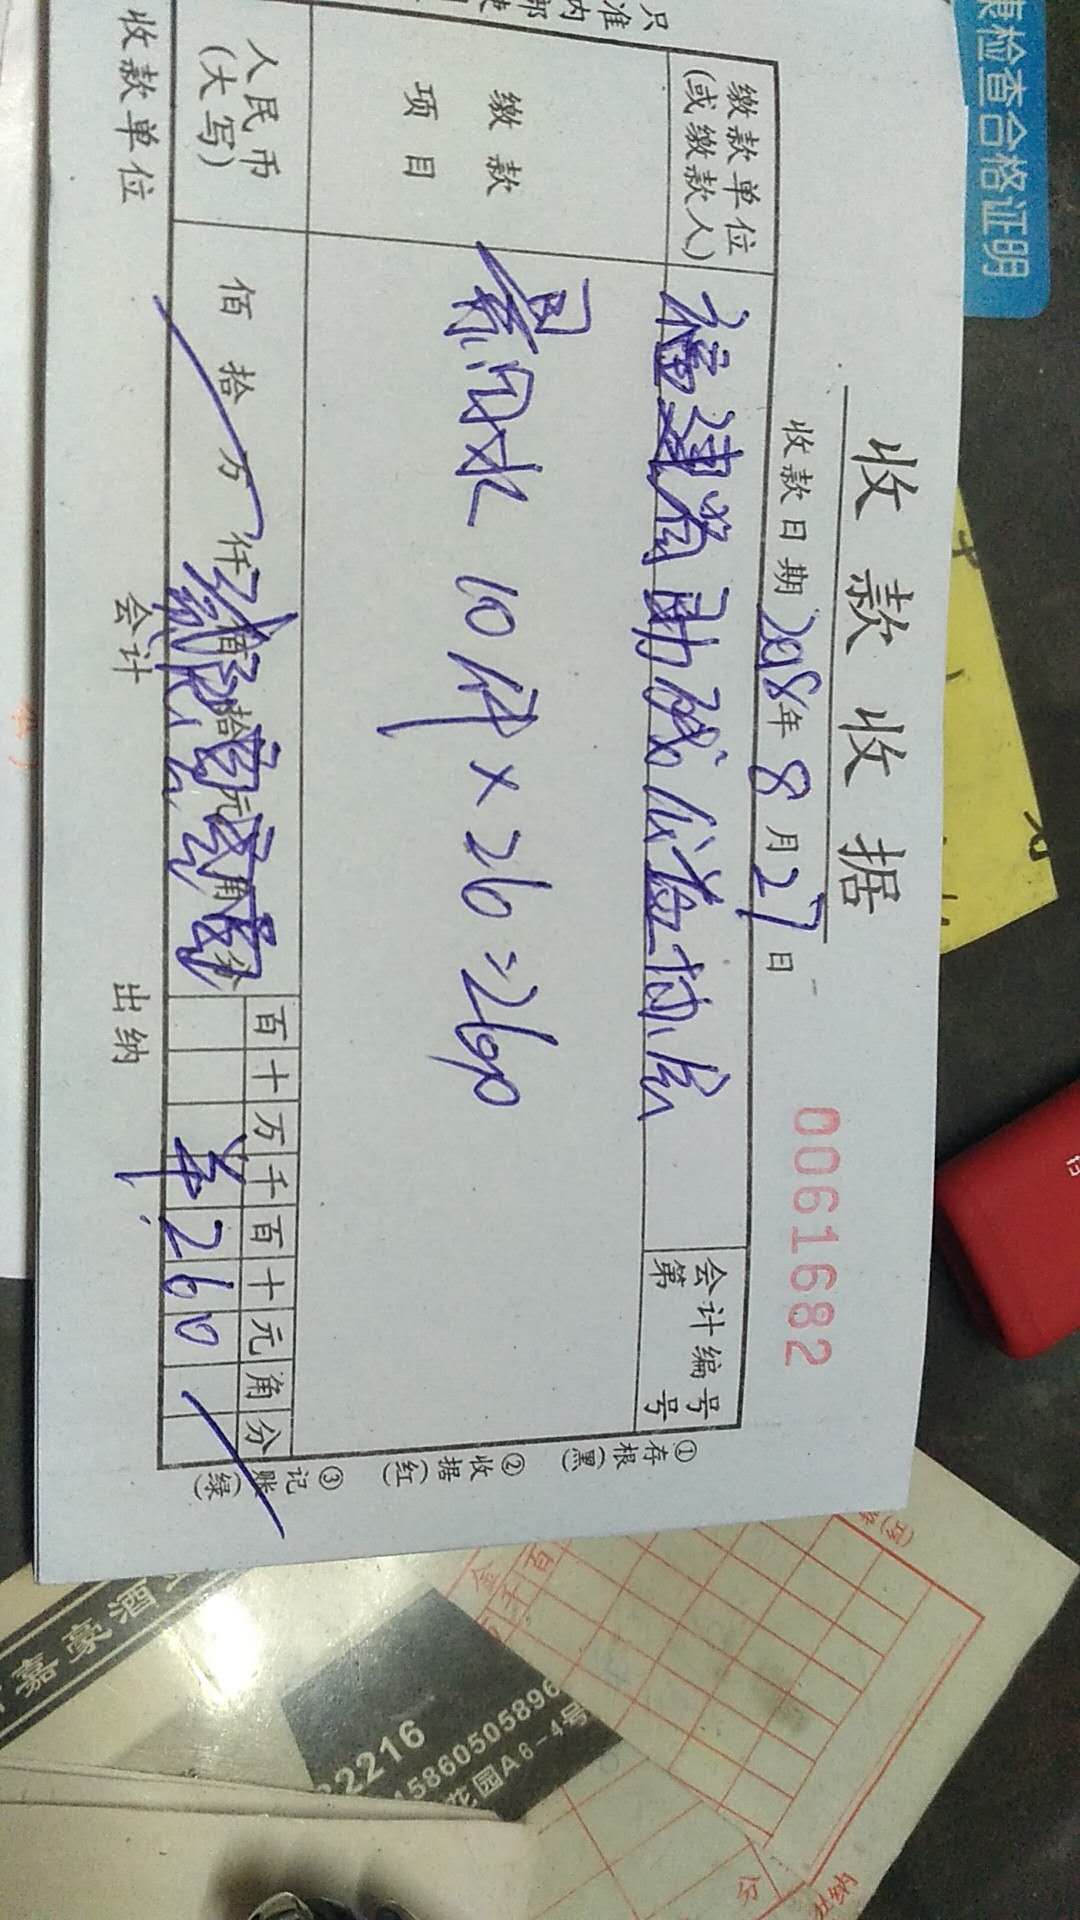 收款收据
0061682
收款日期2018年8月27日
缴款单位
(或缴款人)
福建省助残公益协会
会计编号
第 号
缴款
项目
景田水 10件×26=260
人民币
(大写)
佰拾万仟佰拾元角分
百十万千百十元角分
¥260
收款单位
会计
出纳
①存根(黑)
②收据(红)
③记账(绿)
康检查合格证明
只准内部使
嘉豪酒
22216
15860505896
花园A6-4号
出纳